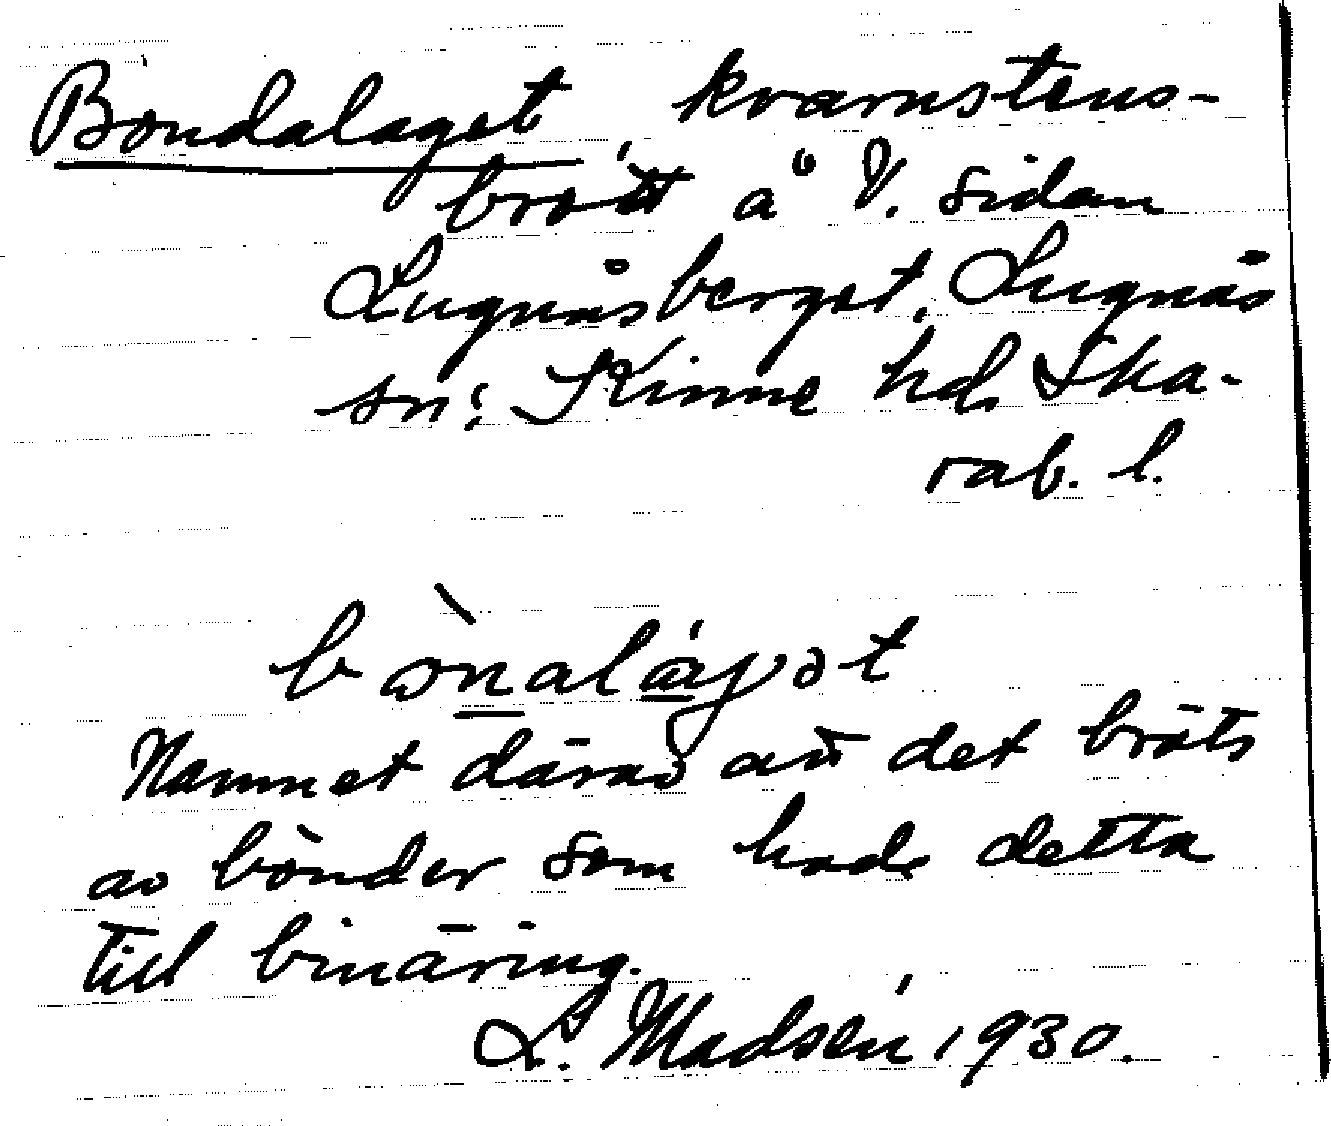 Bondalaget, kvarnstens-
brott å V. sidan
Lugnåsberget, Lugnås
sn; Kinne hd, Ska-
rab. l.
Namnet därav att det bröts
av bönder som hade detta
till binäring.
L. Madsén, 1930.